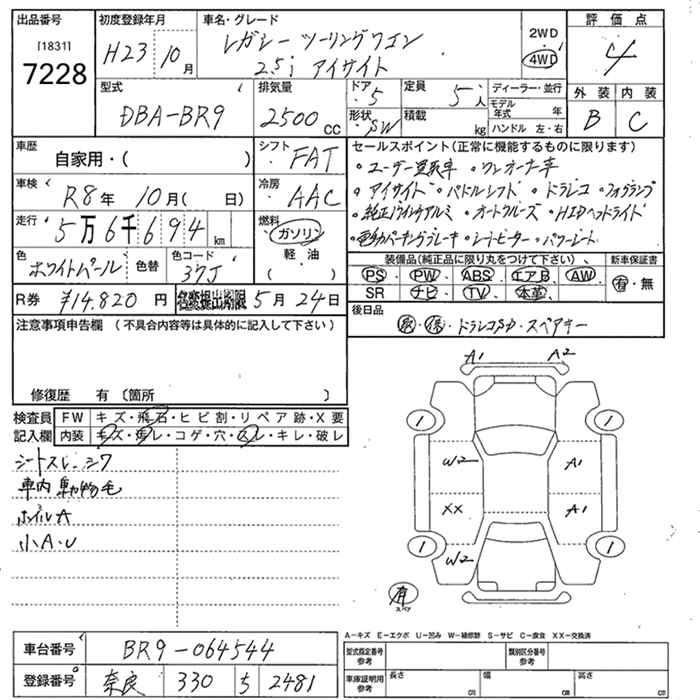 出品番号 初度登録年月 車名・グレード 評価点
[1831] 7228 H23 10月 レガシー ツーリングワゴン 2.5i アイサイト 2WD 4WD 4
型式 排気量 ドア 定員 ディーラー・並行 外装 内装
DBA-BR9 2500 CC 5 5人 モデル年式 年 B C
形状 SW 積載 kg ハンドル 左・右
車歴 自家用・( ) シフト FAT セールスポイント(正常に機能するものに限ります)
車検 R8年 10月( 日) 冷房 AAC
・ユーザー買取車 ・ワンオーナー車
・アイサイト ・パドルシフト ・ドラレコ ・フォグランプ
・純正17インチアルミ ・オートクルーズ ・HIDヘッドライト
・電動パーキングブレーキ ・シートヒーター ・パワーシート
走行 5万6千694km 燃料 ガソリン 軽油 ( )
色 ホワイトパール 色替 色コード 37J
装備品(純正品に限り丸をつけて下さい)、 新車保証書
PS PW ABS エアB AW 有・無
SR ナビ TV 本革
R券 ¥14,820円 名変提出期限 5月24日
後日品
取・保・ドラレコSD・スペアキー
注意事項申告欄(不具合内容等は具体的に記入して下さい)
修復歴 有(箇所 )
検査員記入欄 FW キズ・飛石・ヒビ割・リペア跡・X要
内装 キズ・汚レ・コゲ・穴・スレ・キレ・破レ
シートスレ.シワ
車内動物毛
ホイルA
小A.U
A1 A2
1 1
W2 A1
XX A1
1 1
W2
有 スペア
A-キズ E-エクボ U-凹み W-補修跡 S-サビ C-腐食 XX-交換済
車台番号 BR9-064544
登録番号 奈良 330 す 2481
型式指定番号 参考 類別区分番号 参考
車庫証明用 参考 長さ cm 幅 cm 高さ cm